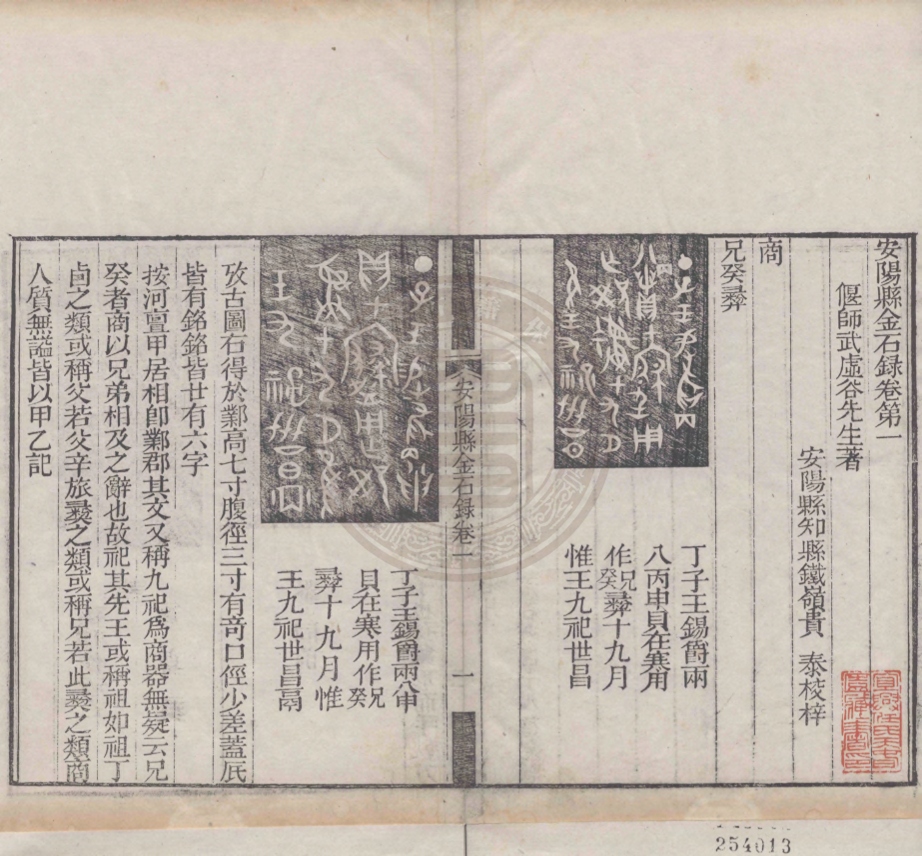 安陽縣金石録卷第一
偃師武虛谷先生著
安陽縣知縣鐵嶺貴 泰校梓
商
兄癸彝
丁子王錫爵兩
八丙申貝在寒用
作兄癸彝十九月
惟王九祀世昌
安陽縣金石録卷一
一
丁子王錫爵兩八申
貝在寒用作兄癸
彝十九月惟
王九祀世昌鬲
攷古圖右得於鄴高七寸腹徑三寸有奇口徑少差蓋底
皆有銘銘皆廿有六字
按河亶甲居相卽鄴郡其文又稱九祀爲商器無疑云兄
癸者商以兄弟相及之辭也故祀其先王或稱祖如祖丁
卣之類或稱父若父辛旅彝之類或稱兄若此彝之類商
人質無諡皆以甲乙記
254013